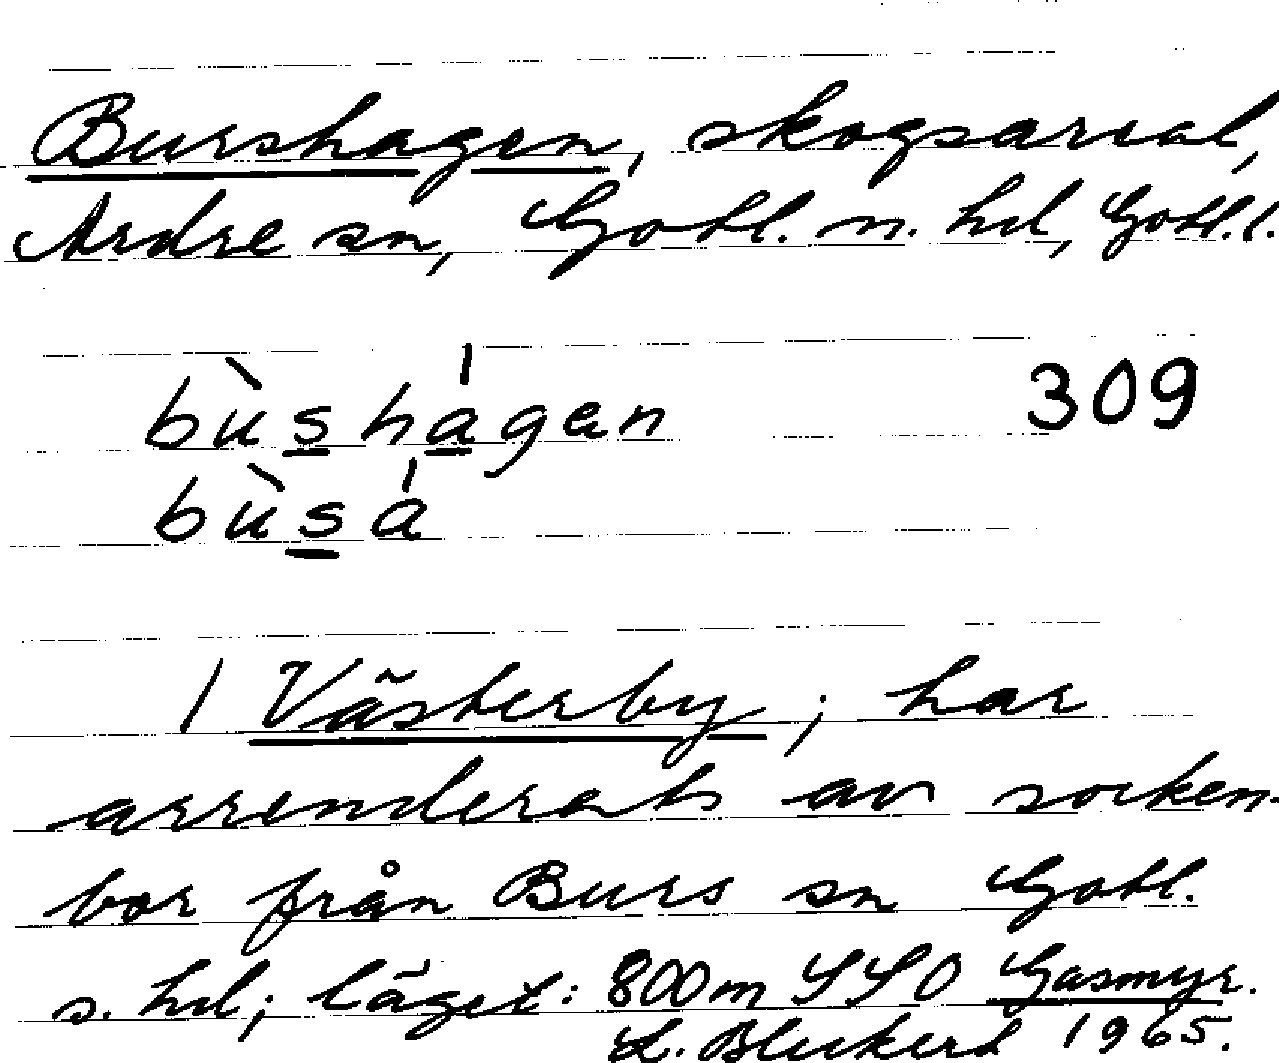 Burshagen, skogsareal,
Ardre sn, Gotl. n. hd, Gotl. l.
bùshágen 309
bùsá
I Västerby; har
arrenderats av socken-
bor från Burs sn Gotl.
s. hd; läget: 800 m SSO Gasmyr.
L. 1965.